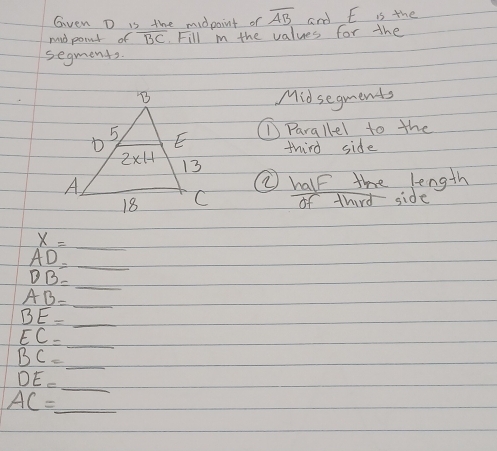 Given D is the midpoint of AB and E is the
midpoint of BC. Fill in the values for the
segments.
Midsegments
① Parallel to the
third side
② half the length
of third side
B
D 5 E
2x+1 13
A C
18
X = ____
AD = ____
DB = ____
AB = ____
BE = ____
EC = ____
BC = ____
DE = ____
AC = ____